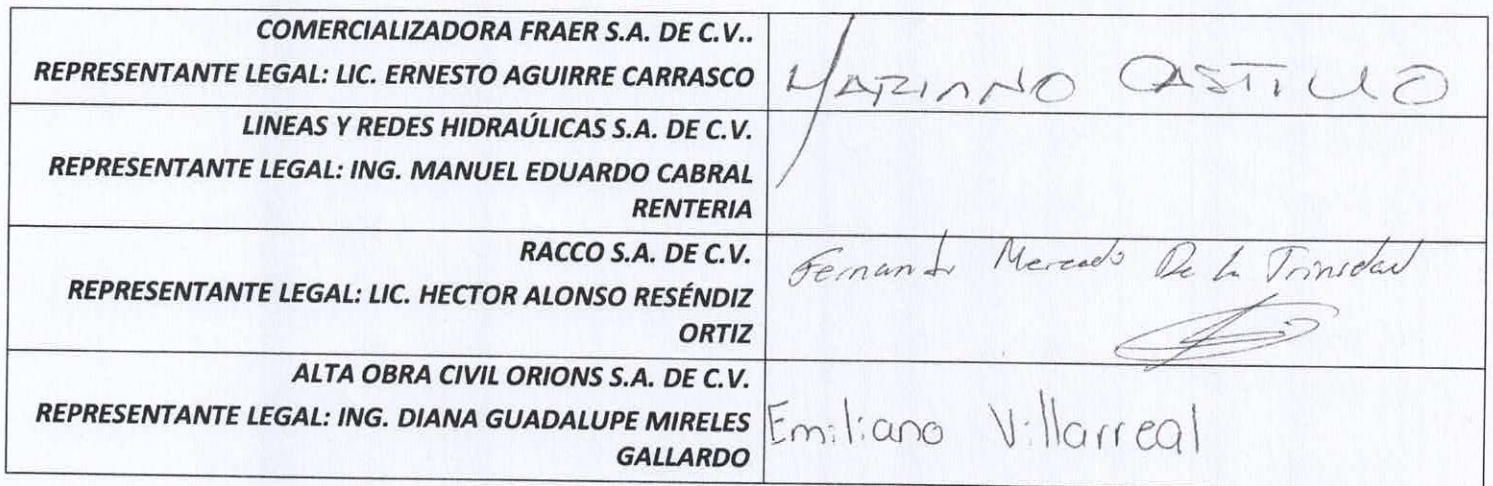 COMERCIALIZADORA FRAER S.A. DE C.V..
REPRESENTANTE LEGAL: LIC. ERNESTO AGUIRRE CARRASCO
MARIANO CASTILLO
LINEAS Y REDES HIDRAÚLICAS S.A. DE C.V.
REPRESENTANTE LEGAL: ING. MANUEL EDUARDO CABRAL
RENTERIA
RACCO S.A. DE C.V.
REPRESENTANTE LEGAL: LIC. HECTOR ALONSO RESÉNDIZ
ORTIZ
Fernando Mercado De la Trinidad
ALTA OBRA CIVIL ORIONS S.A. DE C.V.
REPRESENTANTE LEGAL: ING. DIANA GUADALUPE MIRELES
GALLARDO
Emiliano Villarreal